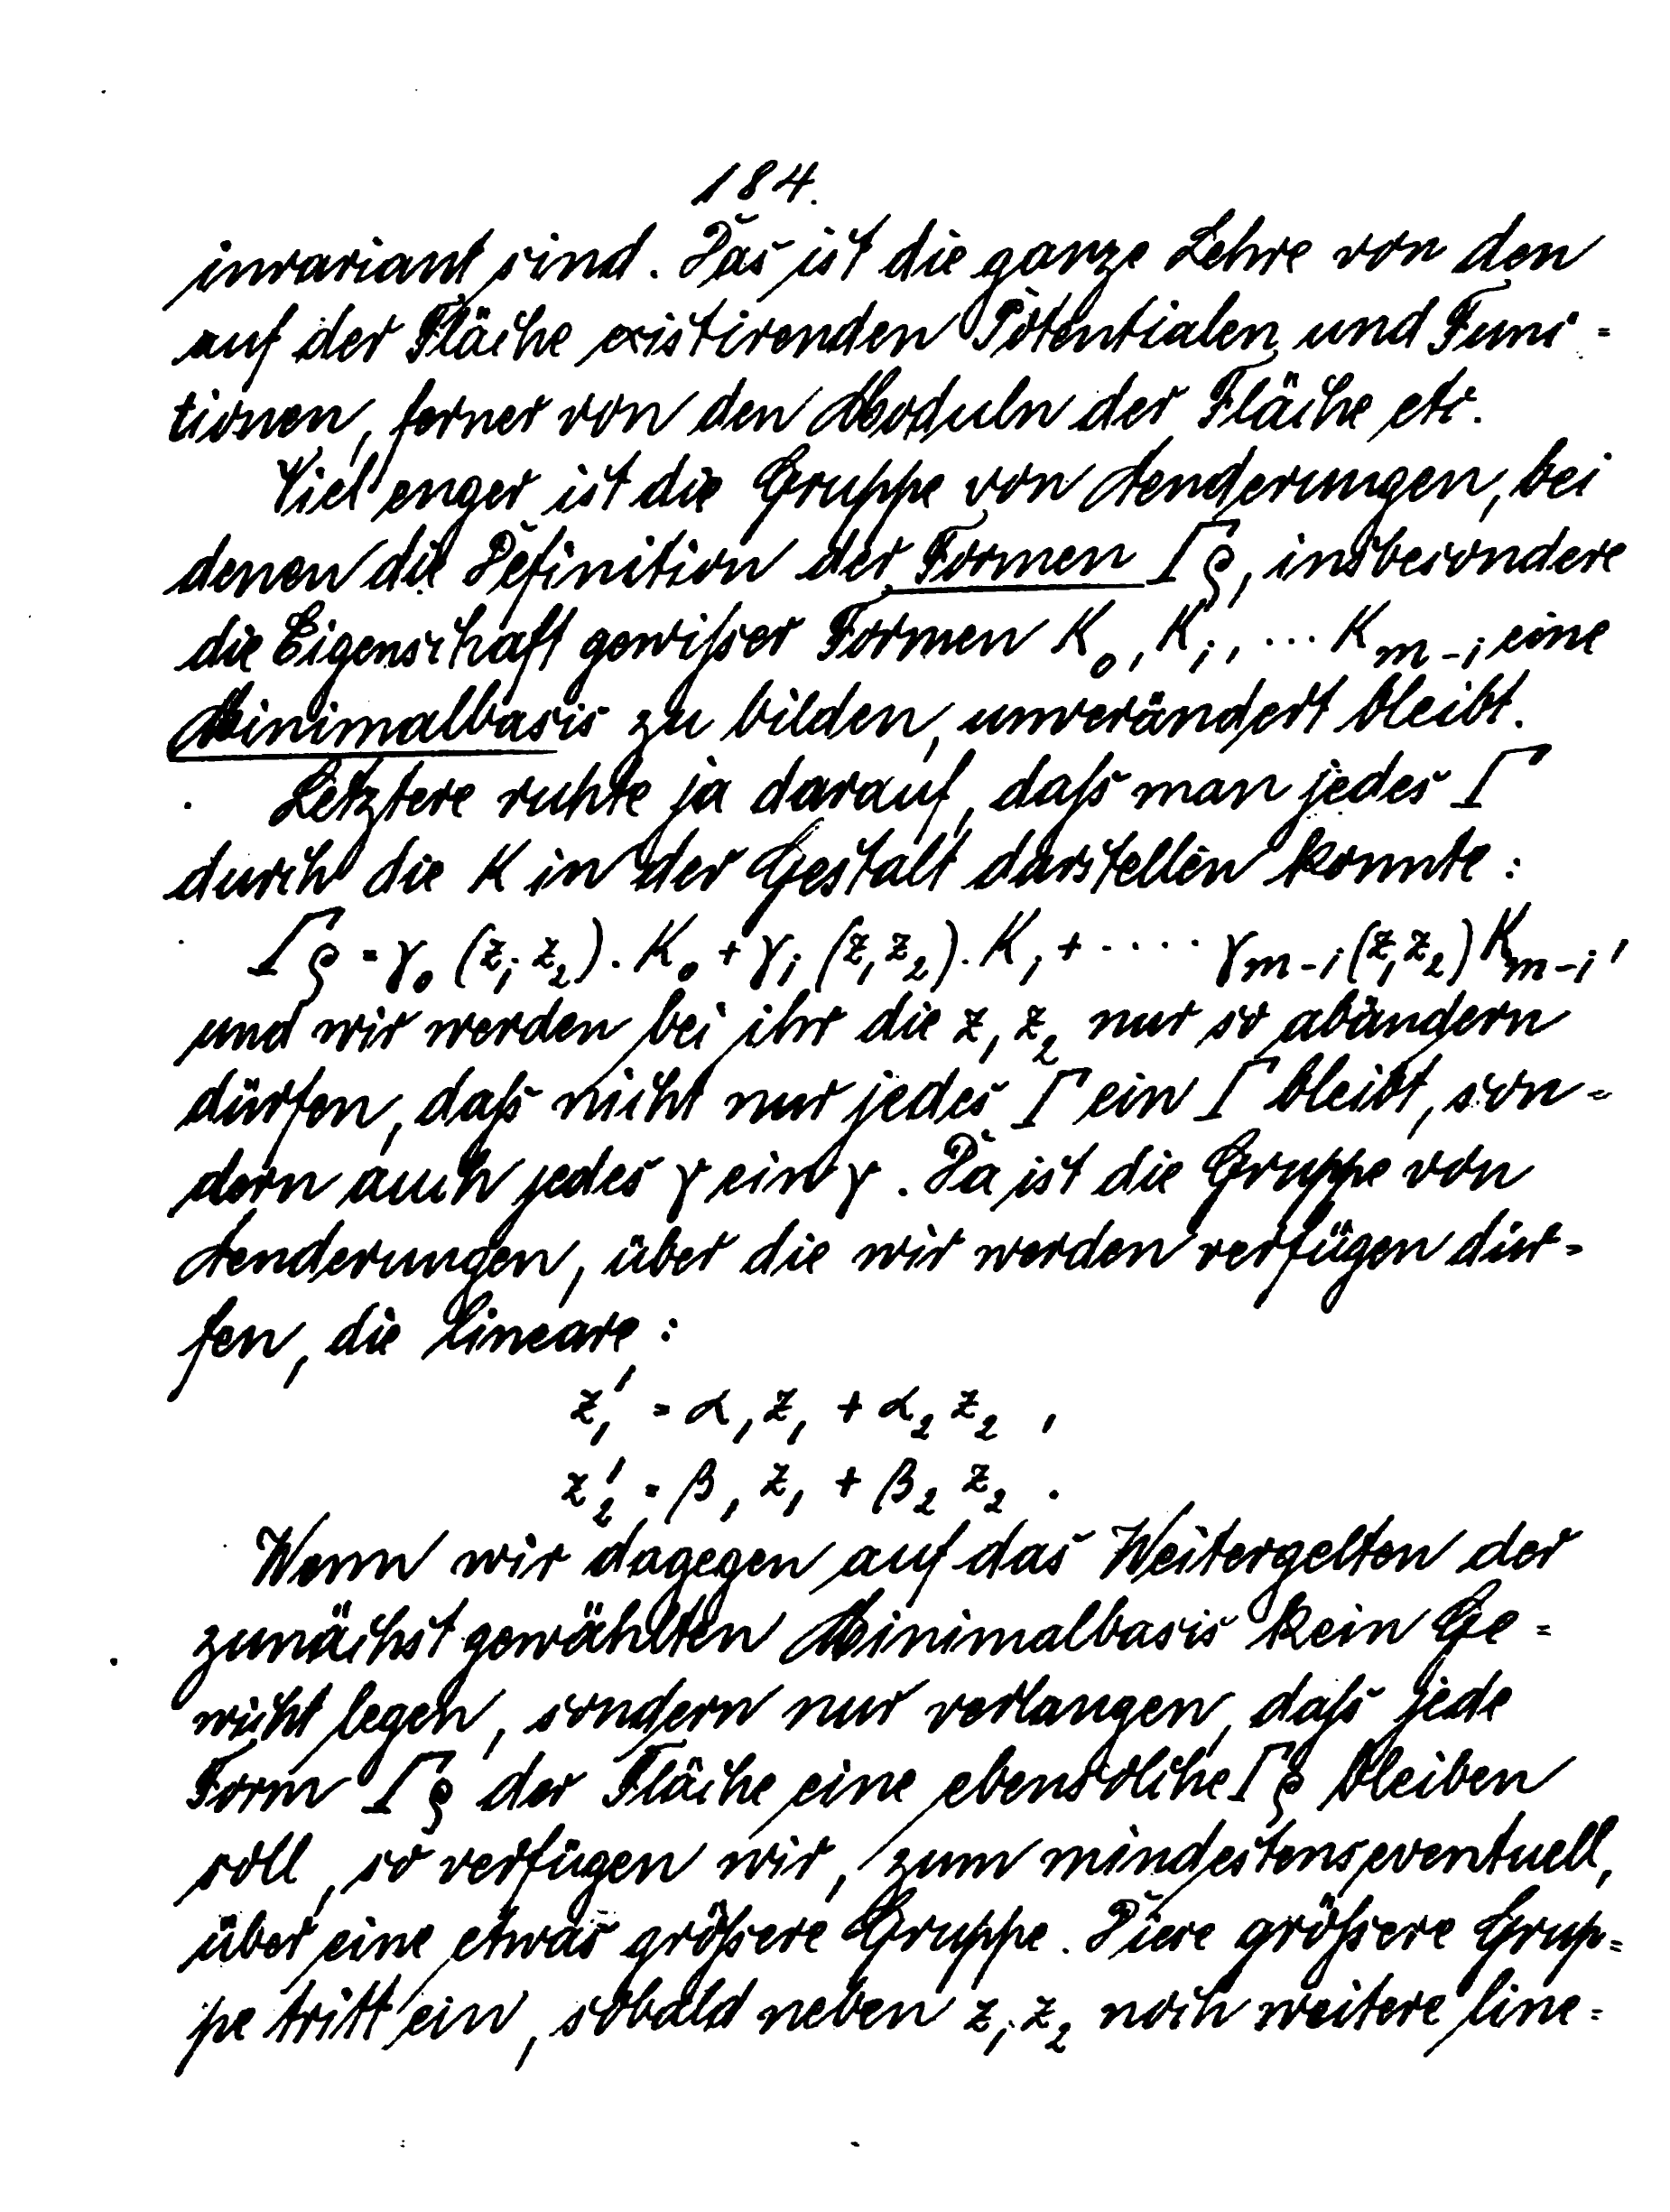 184.
invariant sind. Das ist die ganze Lehre von den
auf der Fläche existirenden Potentialen und Func-
tionen, ferner von den Moduln der Fläche etc.
Viel enger ist die Gruppe von Aenderungen, bei
denen die Definition der Formen Γϱ, insbesondere
die Eigenschaft gewisser Formen K₀, K₁, ... Kₘ₋₁ eine
Minimalbasis zu bilden, unverändert bleibt.
Letztere ruhte ja darauf, daß man jedes Γ
durch die K in der Gestalt darstellen konnte:
Γϱ = γ₀ (z₁ z₂). K₀ + γ₁ (z₁ z₂). K₁ + ···· γₘ₋₁ (z₁ z₂) Kₘ₋₁,
und wir werden bei ihr die z₁ z₂ nur so abändern
dürfen, daß nicht nur jedes Γ ein Γ bleibt, son-
dern auch jedes γ ein γ. Da ist die Gruppe von
Aenderungen, über die wir werden verfügen dür-
fen, die lineare:
z₁' = α₁ z₁ + α₂ z₂ ,
z₂' = β₁ z₁ + β₂ z₂ .
Wenn wir dagegen auf das Weitergelten der
zunächst gewählten Minimalbasis kein Ge-
wicht legen, sondern nur verlangen, daß jede
Form Γϱ der Fläche eine ebensolche Γϱ bleiben
soll, so verfügen wir, zum mindesten eventuell,
über eine etwas größere Gruppe. Diese größere Grup-
pe tritt ein, sobald neben z₁ z₂ noch weitere line-